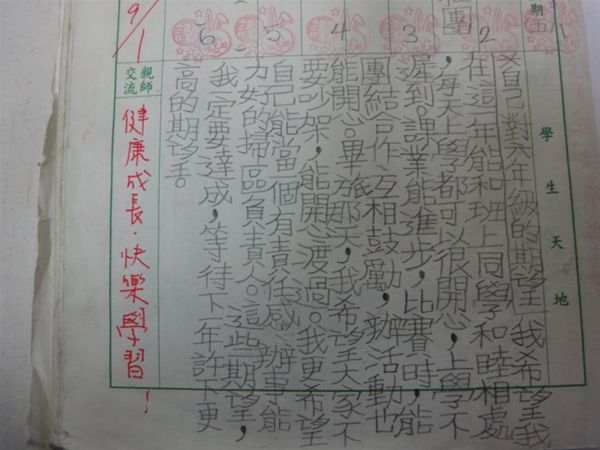 期五
學生天地
自己對六年級的期望 我希望我
在這一年能和班上同學和睦相處
,每天上學都可以很開心,上學不
遲到。課業能進步,比賽時,能
團結合作,互相鼓勵,辦活動也
能開心。畢旅那天,我希望大家不
要吵架,能開心渡過。我更希望
自己能當一個有責任感、辦事能
力好的掃區負責人。這些期望,
我一定要達成,等待下一年許下更
高的期望。
社團
2
3
4
5
6
親師交流
9/1
健康成長.快樂學習!